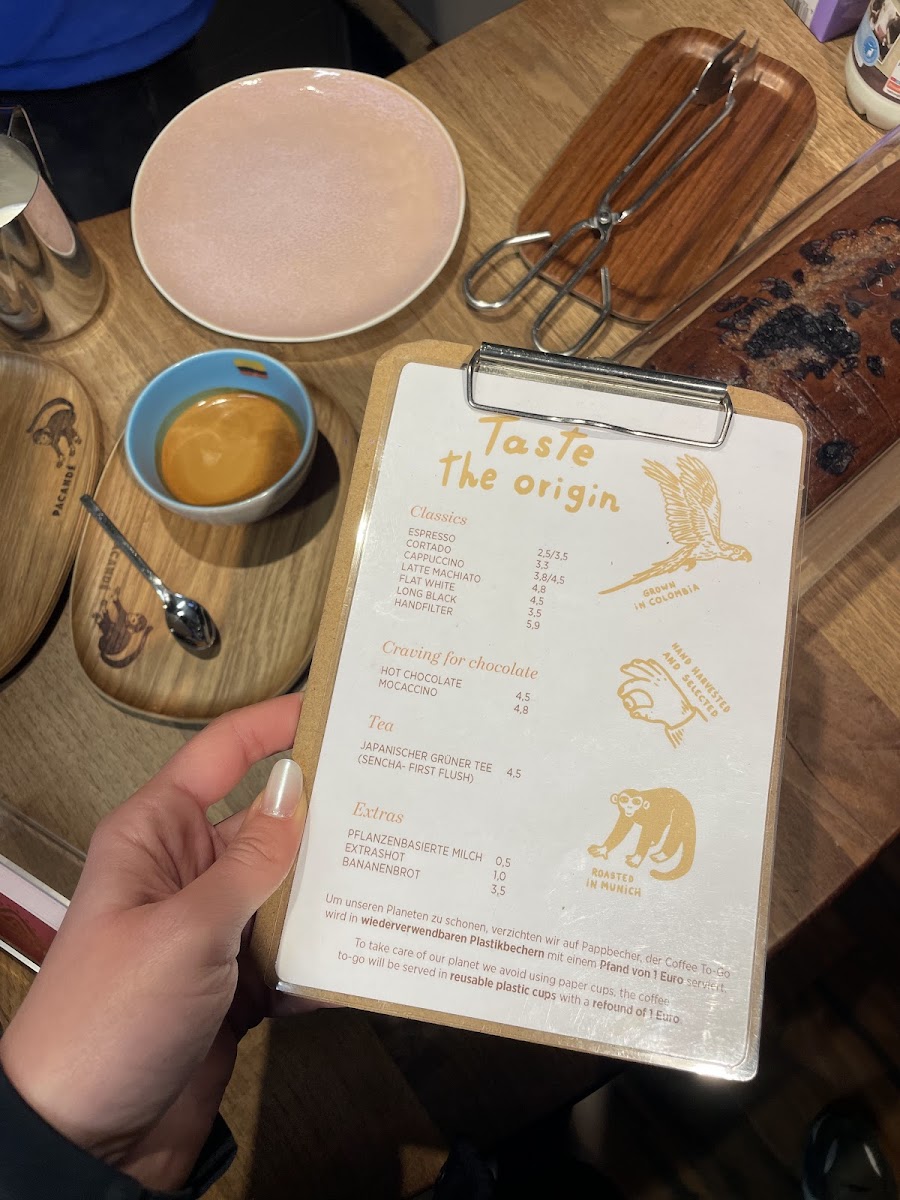 Taste
the origin
Classics
ESPRESSO 2,5/3,5
CORTADO 3,3
CAPPUCCINO 3,8/4,5
LATTE MACHIATO 4,8
FLAT WHITE 4,5
LONG BLACK 3,5
HANDFILTER 5,9
GROWN
IN COLOMBIA
Craving for chocolate
HOT CHOCOLATE 4,5
MOCACCINO 4,8
HAND HARVESTED
AND SELECTED
Tea
JAPANISCHER GRÜNER TEE
(SENCHA- FIRST FLUSH) 4,5
Extras
PFLANZENBASIERTE MILCH 0,5
EXTRASHOT 1,0
BANANENBROT 3,5
ROASTED
IN MUNICH
Um unseren Planeten zu schonen, verzichten wir auf Pappbecher, der Coffee To-Go
wird in wiederverwendbaren Plastikbechern mit einem Pfand von 1 Euro serviert.
To take care of our planet we avoid using paper cups, the coffee
to-go will be served in reusable plastic cups with a refound of 1 Euro
PACANDÉ
PACANDÉ